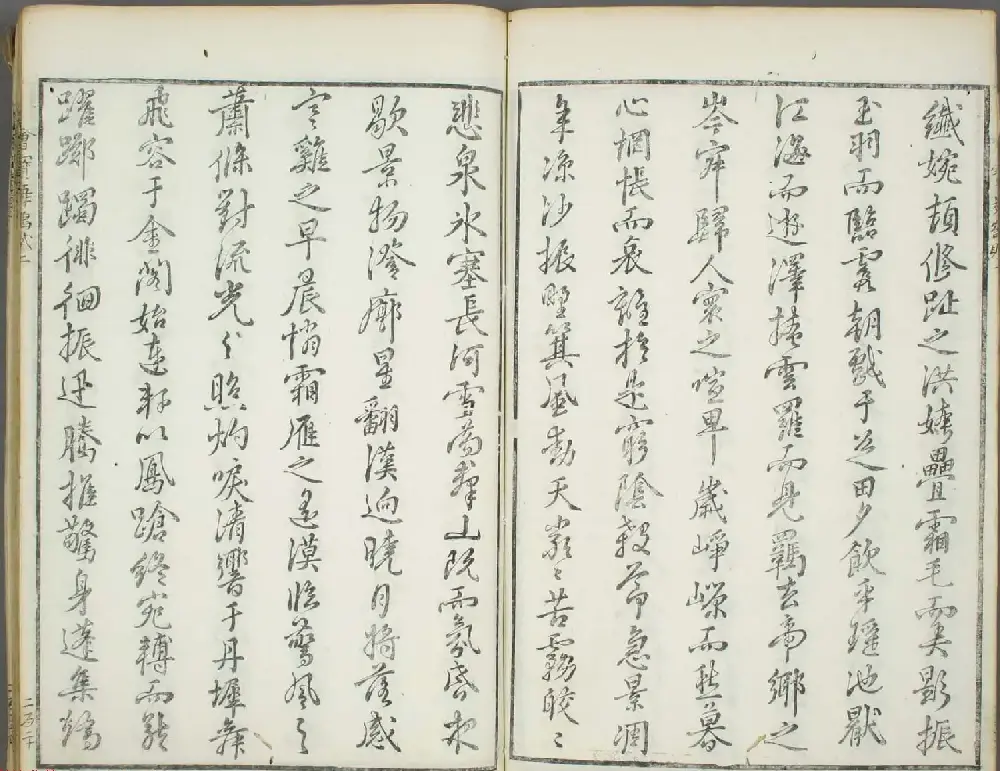 纖婉頓脩趾之洪姱疊霜毛而弄影振
玉羽而臨霞朝戲于芝田夕飲乎瑤池厭
江海而遊澤掩雲羅而見羈去帝鄉之
岑寂歸人寰之喧卑歲崢嶸而愁暮
心惆悵而哀離於是窮陰殺節急景凋
年凉沙振野箕風動天嚴〻苦霧皎〻
悲泉冰塞長河雪滿羣山既而氛昏夜
歇景物澄廓星翻漢迴曉月將落感
寒雞之早晨憐霜雁之違漠臨驚風之
蕭條對流光之照灼唳清響于丹墀舞
飛容于金閣始連軒以鳳蹌終宛轉而龍
躍躑躅徘徊振迅騰摧驚身蓬集矯